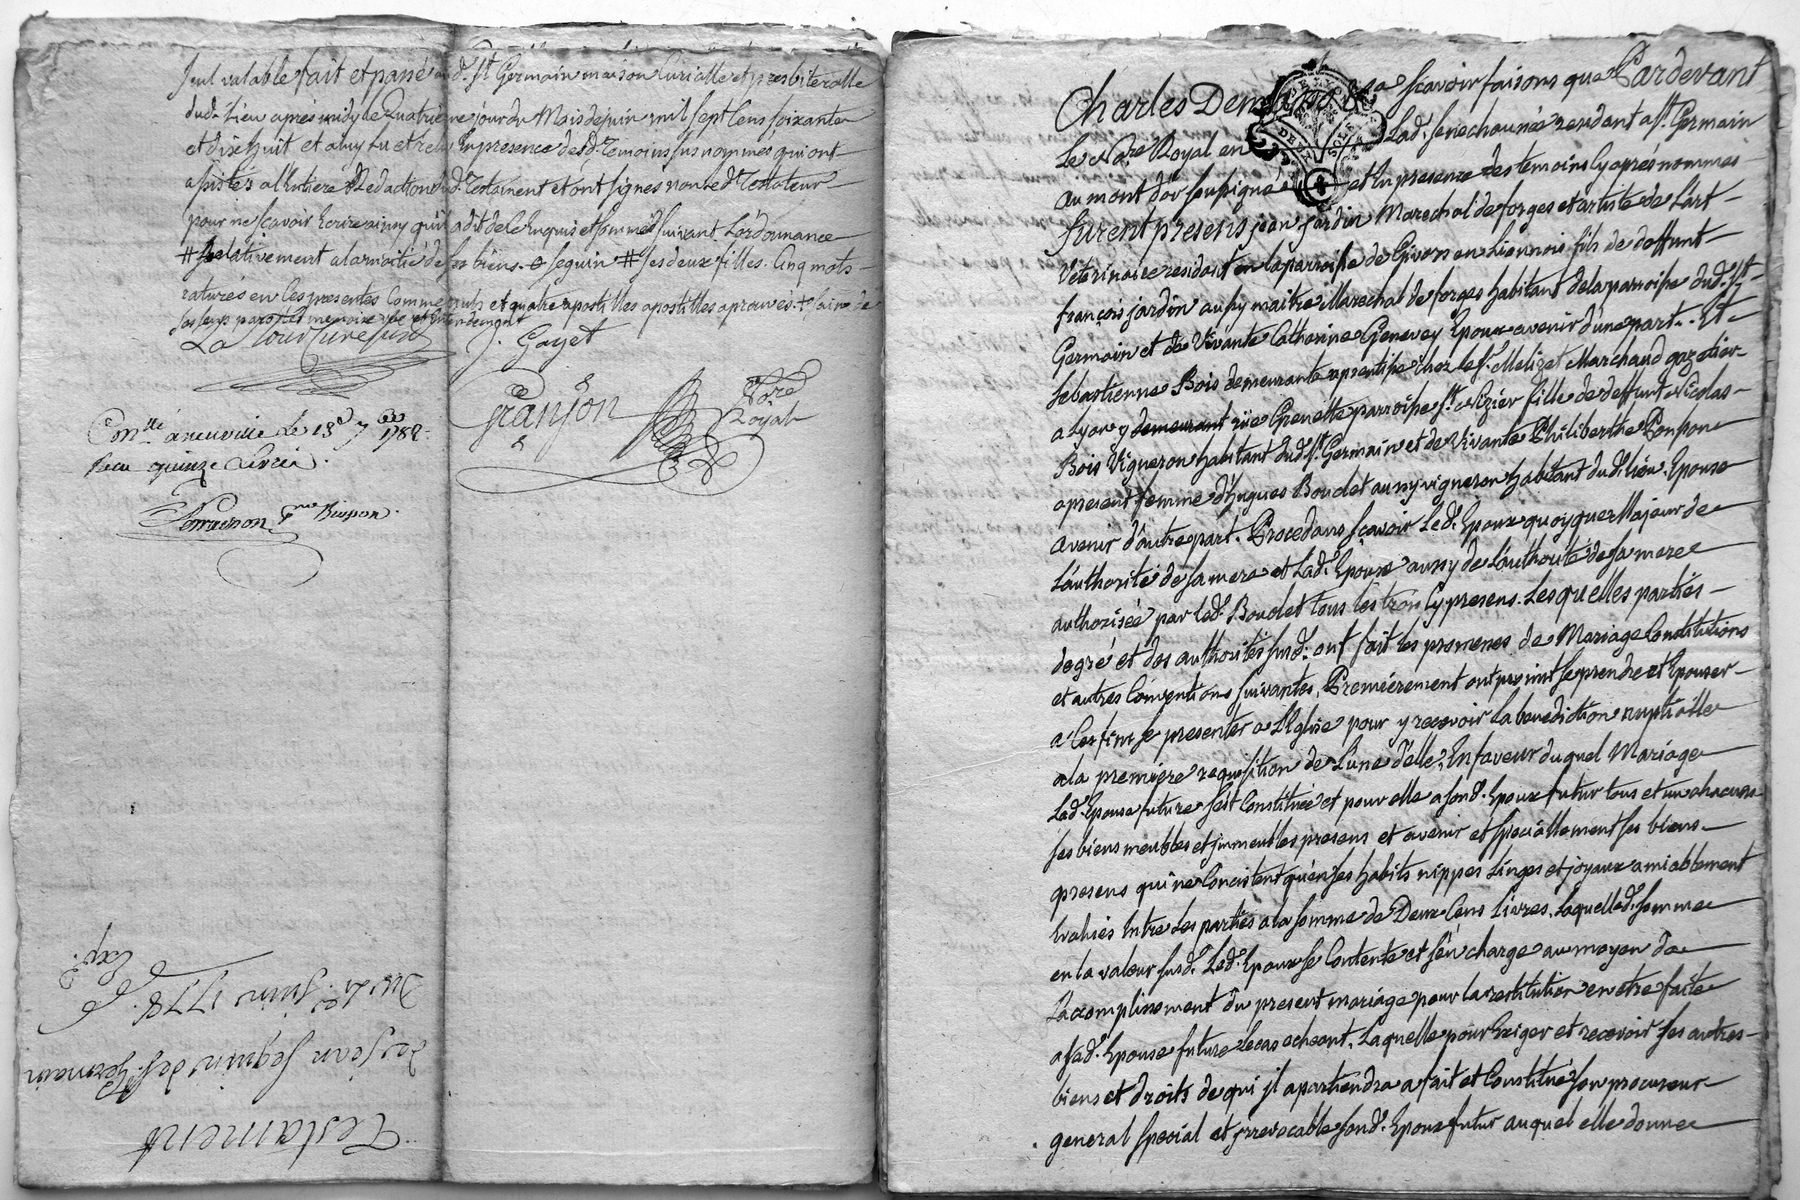 seul valable fait et passé aud. St Germain maison Curialle et presbiteralle
dud. Lieu aprés midy le Quatrieme jour du Mois de juin mil sept Cens soixante
et dix huit et a luy Lu et relu En presence desd. Temoins sus nommés qui ont
assistés a l'Entiere Redaction dud. Testament et ont signés non led. Testateur
pour ne scavoir Ecrire ainsy qu'il a dit de ce Enquis et sommé suivant L'ordonnance
# Relativement a la moitié de ses biens. Seguin # ses deux filles. Cinq mots
raturés en Ces presentes Comme nuls et quatre apostilles apostilles aprouvés. + sain de
ses sens parolles memoire vue et Entendement
La Tour Curé J. Gayet
Granjon Nore Royal
Conllé a neuville Le 13e 7bre 1782.
Recu quinze Livres.
Testament
de jean Seguin de St. Germain
Du 4e. juin 1778.
Exp.
Charles Dem a scavoir faisons que Pardevant
Le Nore Royal en Lad. senechaussée residant a St. Germain
au mont d'or soussigné et En presence des temoins Cy aprés nommes
furent presens jean jardin Marechal de forges et artiste de L'art
Veterinaire residant en la parroisse de Givors en Lionnois fils de deffunt
françois jardin aussy maitre Marechal de forges habitant de la parroisse dud. St
Germain et de Vivante Catherine Genevey Epoux avenir d'une part. Et
Sebastienne Bois demeurante aprentisse chez le Sr. Melizet Marchand gazetier
a Lyon y demeurant rüe Grenette parroisse St. Nizier fille de deffunt Nicolas
Bois Vigneron habitant dud. St. Germain et de Vivante Philiberthe Ponson
a present femme d'hugues Boudet aussy vigneron habitant dud. lieu. Epouse
avenir d'autre part. Procedans sçavoir Led. Epoux quoyque Majeur de
L'authorité de sa mere et Lad. Epouse aussy de L'authorité de sa mere
authorisée par led. Boudet tous les trois Cy presens. Lesquelles parties
de gré et des authorités susd. ont fait les promesses de Mariage Constitutions
et autres Conventions suivantes, Premiérement ont promis se prendre et Epouser
a Ces fins se presenter a L'Eglise pour y recevoir La benediction nuptialle
a la premiere requisition de L'une d'elle, En faveur duquel Mariage
Lad. Epouse future s'est Constituée et pour elle a sond. Epoux futur tous et un chacuns
ses biens meubles et jmmeubles presens et avenir et speciallement ses biens
presens qui ne Concistent qu'en ses habits nippes Linges et joyaux amiablement
Evalués Entre Les parties a la somme de Deux Cens Livres, Laquelle d. somme
en la valeur susd. Led. Epoux se Contente et s'en charge au moyen de
L'acomplissement du present mariage pour la restitution en etre faite
a sad. Epouse future Le cas echeant, Laquelle pour Exiger et recevoir ses autres
biens et droits de qui jl apartiendra a fait et Constitué son procureur
general special et jrrevocable sond. Epoux futur auquel elle donne